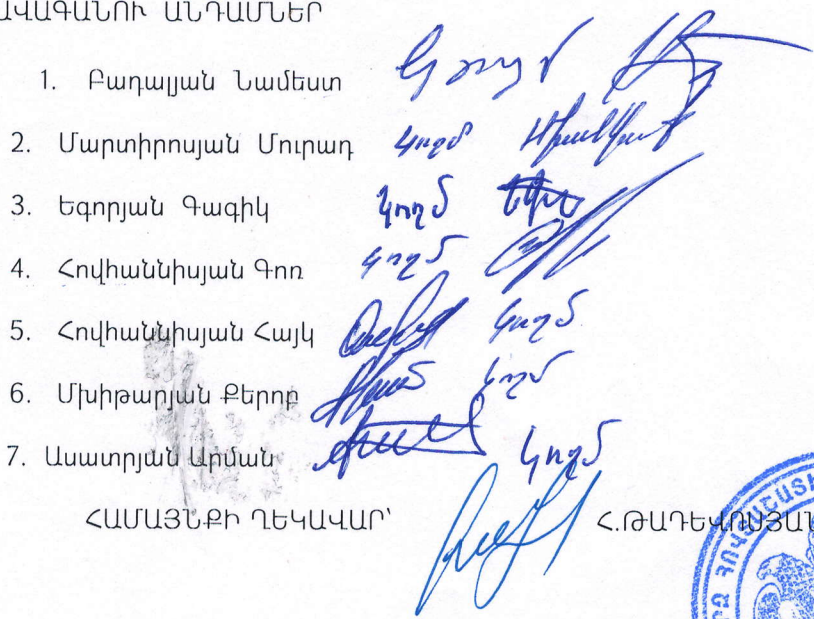 ԱՎԱԳԱՆՈՒ ԱՆԴԱՄՆԵՐ
1. Բադալյան Նամեստ կողմ
2. Մարտիրոսյան Մուրադ կողմ
3. Եգորյան Գագիկ կողմ
4. Հովհաննիսյան Գոռ կողմ
5. Հովհաննիսյան Հայկ կողմ
6. Մխիթարյան Քերոբ կողմ
7. Ասատրյան Արման կողմ
ՀԱՄԱՅՆՔԻ ՂԵԿԱՎԱՐ՝ Հ.ԹԱԴԵՎՈՍՅԱՆ